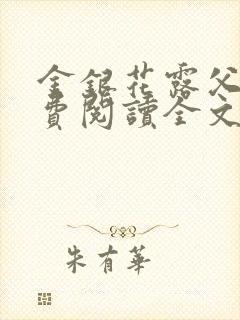 金銀花露父
費閱讀全文
朱有華